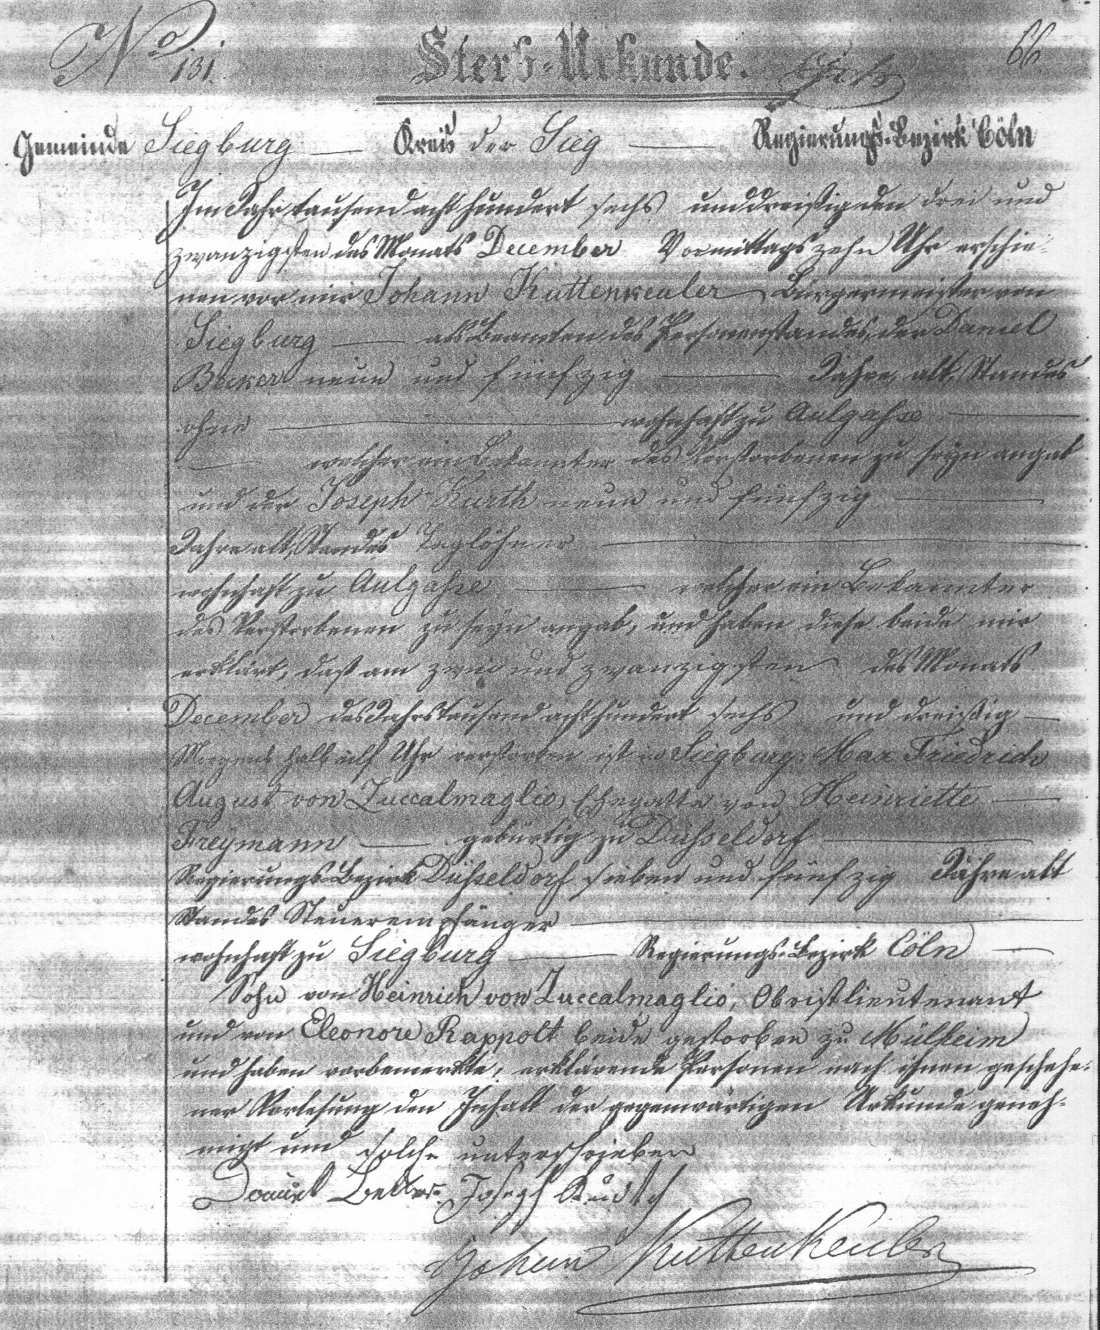 No 131. Sterb-Urkunde. 66
Gemeinde Siegburg Kreis der Sieg Regierungs-Bezirk Cöln
Im Jahr tausend acht hundert sechs und dreißig den drei und
zwanzigsten des Monats December Vormittags zehn Uhr erschie-
nen vor mir Johann Kuttenkeuler Bürgermeister von
Siegburg als Beamten des Personenstandes, der Daniel
Becker neun und fünfzig Jahre alt, Standes
ohne wohnhaft zu Aulgasse
welcher ein Bekannter des Verstorbenen zu seyn angab
und der Joseph Kurth neun und fünfzig
Jahre alt, Standes Taglöhner
wohnhaft zu Aulgasse welcher ein Bekannter
des Verstorbenen zu seyn angab, und haben diese beide mir
erklärt, daß am zwei und zwanzigsten des Monats
December des Jahrs tausend acht hundert sechs und dreißig
Morgens halb elf Uhr verstorben ist in Siegburg: Max Friedrich
August von Zuccalmaglio, Ehegatte von Heinriette
Freymann gebürtig zu Düsseldorf
Regierungs-Bezirk Düsseldorf sieben und fünfzig Jahre alt
Standes Steuerempfänger
wohnhaft zu Siegburg Regierungs-Bezirk Cöln
Sohn von Heinrich von Zuccalmaglio, Obristlieutenant
und von Eleonore Rappolt beide gestorben zu Mülheim
und haben vorbemerkte, erklärende Personen nach ihnen geschehe-
ner Vorlesung den Inhalt der gegenwärtigen Urkunde geneh-
migt und solche unterschrieben
Daniel Becker Joseph Kurth
Johann Kuttenkeuler